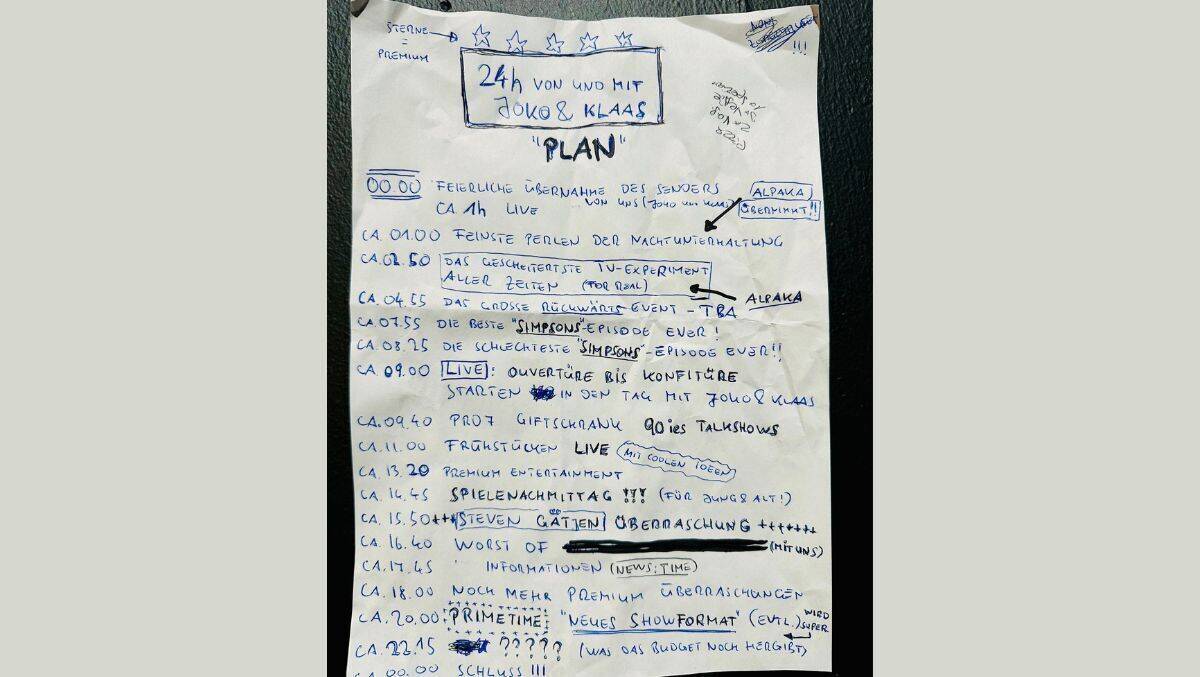 STERNE
=
PREMIUM
24h VON UND MIT
JOKO & KLAAS
"PLAN"
!!!
00.00 FEIERLICHE ÜBERNAHME DES SENDERS
VON UNS (JOKO UND KLAAS)
CA. 1h LIVE
ALPAKA
ÜBERNIMMT!!
CA. 01.00 FEINSTE PERLEN DER NACHTUNTERHALTUNG
CA. 02.50 DAS GESCHEITERTSTE TV-EXPERIMENT
ALLER ZEITEN (FOR REAL)
ALPAKA
CA. 04.55 DAS GROSSE RÜCKWÄRTS-EVENT - TBA
CA. 07.55 DIE BESTE "SIMPSONS"-EPISODE EVER!
CA. 08.25 DIE SCHLECHTESTE "SIMPSONS"-EPISODE EVER!!
CA. 09.00 LIVE: OUVERTÜRE BIS KONFITÜRE
STARTEN IN DEN TAG MIT JOKO & KLAAS
CA. 09.40 PRO7 GIFTSCHRANK 90ies TALKSHOWS
CA. 11.00 FRÜHSTÜCKEN LIVE (MIT COOLEN IDEEN)
CA. 13.20 PREMIUM ENTERTAINMENT
CA. 14.45 SPIELENACHMITTAG !!! (FÜR JUNG & ALT!)
CA. 15.50 +++ STEVEN GÄTJEN ÜBERRASCHUNG +++++++
CA. 16.40 WORST OF (MIT UNS)
CA. 17.45 INFORMATIONEN (NEWS:TIME)
CA. 18.00 NOCH MEHR PREMIUM ÜBERRASCHUNGEN
CA. 20.00 PRIMETIME "NEUES SHOWFORMAT" (EVTL.) WIRD
SUPER
CA. 22.15 ????? (WAS DAS BUDGET NOCH HERGIBT)
CA. 00.00 SCHLUSS !!!